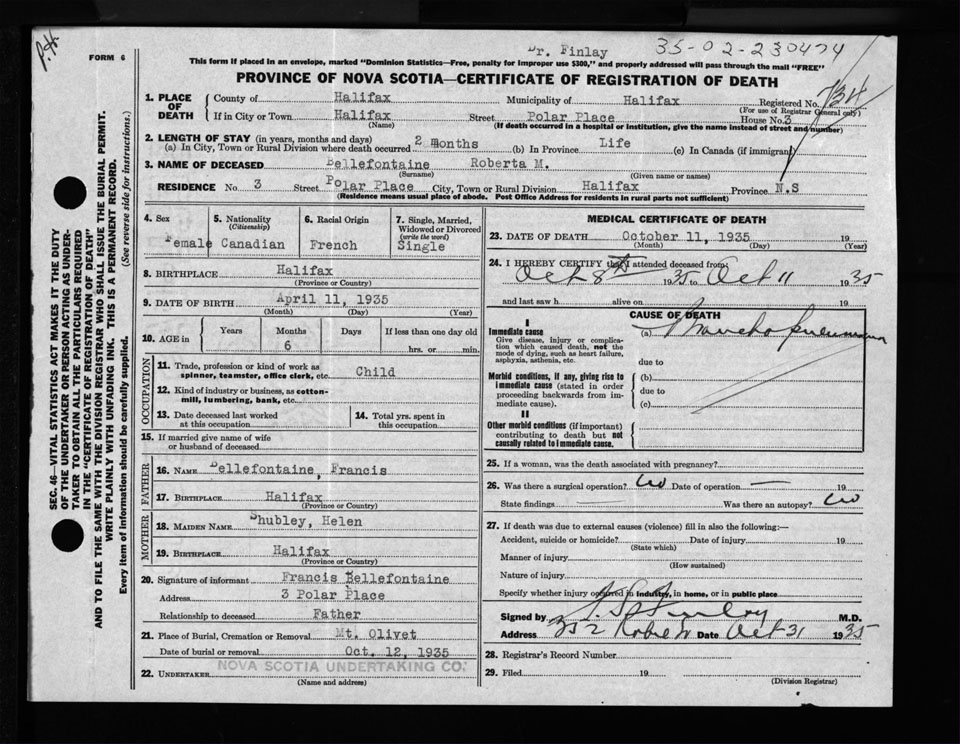 P.H.
FORM 6
Dr. Finlay 35-02-230474
This form if placed in an envelope, marked "Dominion Statistics—Free, penalty for improper use $300," and properly addressed will pass through the mail "FREE"
PROVINCE OF NOVA SCOTIA—CERTIFICATE OF REGISTRATION OF DEATH
SEC. 46—VITAL STATISTICS ACT MAKES IT THE DUTY
OF THE UNDERTAKER OR PERSON ACTING AS UNDER-
TAKER TO OBTAIN ALL THE PARTICULARS REQUIRED
IN THE "CERTIFICATE OF REGISTRATION OF DEATH"
AND TO FILE THE SAME WITH THE DIVISION REGISTRAR WHO SHALL ISSUE THE BURIAL PERMIT.
WRITE PLAINLY WITH UNFADING INK. THIS IS A PERMANENT RECORD.
Every item of information should be carefully supplied. (See reverse side for instructions.)
1. PLACE OF DEATH
County of Halifax Municipality of Halifax Registered No. 734
(For use of Registrar General only)
If in City or Town Halifax Street Polar Place House No. 3
(Name) (If death occurred in a hospital or institution, give the name instead of street and number)
2. LENGTH OF STAY (in years, months and days)
(a) In City, Town or Rural Division where death occurred 2 months (b) In Province Life (c) In Canada (if immigrant)
3. NAME OF DECEASED Bellefontaine Roberta M.
(Surname) (Given name or names)
RESIDENCE No. 3 Street Polar Place City, Town or Rural Division Halifax Province N.S
(Residence means usual place of abode. Post Office Address for residents in rural parts not sufficient)
4. Sex Female
5. Nationality (Citizenship) Canadian
6. Racial Origin French
7. Single, Married, Widowed or Divorced (write the word) Single
8. BIRTHPLACE Halifax
(Province or Country)
9. DATE OF BIRTH April 11, 1935
(Month) (Day) (Year)
10. AGE in Years Months Days If less than one day old
6 hrs. or min.
OCCUPATION
11. Trade, profession or kind of work as
spinner, teamster, office clerk, etc. Child
12. Kind of industry or business, as cotton-
mill, lumbering, bank, etc.
13. Date deceased last worked
at this occupation
14. Total yrs. spent in
this occupation
15. If married give name of wife
or husband of deceased
FATHER
16. NAME Bellefontaine, Francis
17. BIRTHPLACE Halifax
(Province or Country)
MOTHER
18. MAIDEN NAME Shubley, Helen
19. BIRTHPLACE Halifax
(Province or Country)
20. Signature of informant Francis Bellefontaine
Address 3 Polar Place
Relationship to deceased Father
21. Place of Burial, Cremation or Removal Mt. Olivet
Date of burial or removal Oct. 12, 1935
22. UNDERTAKER NOVA SCOTIA UNDERTAKING CO.
(Name and address)
MEDICAL CERTIFICATE OF DEATH
23. DATE OF DEATH October 11, 1935 19
(Month) (Day) (Year)
24. I HEREBY CERTIFY that I attended deceased from:
Oct 8th 1935 to Oct 11 1935
and last saw h alive on 19
CAUSE OF DEATH
I
Immediate cause
Give disease, injury or complica-
tion which caused death, not the
mode of dying, such as heart failure,
asphyxia, asthenia, etc.
(a) Broncho pneumonia
due to
Morbid conditions, if any, giving rise to
immediate cause (stated in order
proceeding backwards from im-
mediate cause).
(b)
due to
(c)
II
Other morbid conditions (if important)
contributing to death but not
causally related to immediate cause.
25. If a woman, was the death associated with pregnancy?
26. Was there a surgical operation? No Date of operation — 19
State findings Was there an autopsy? No
27. If death was due to external causes (violence) fill in also the following:—
Accident, suicide or homicide? Date of injury 19
(State which)
Manner of injury
(How sustained)
Nature of injury
Specify whether injury occurred in industry, in home, or in public place
Signed by M.D.
Address 352 Robie St Date Oct 31 1935
28. Registrar's Record Number
29. Filed 19
(Division Registrar)